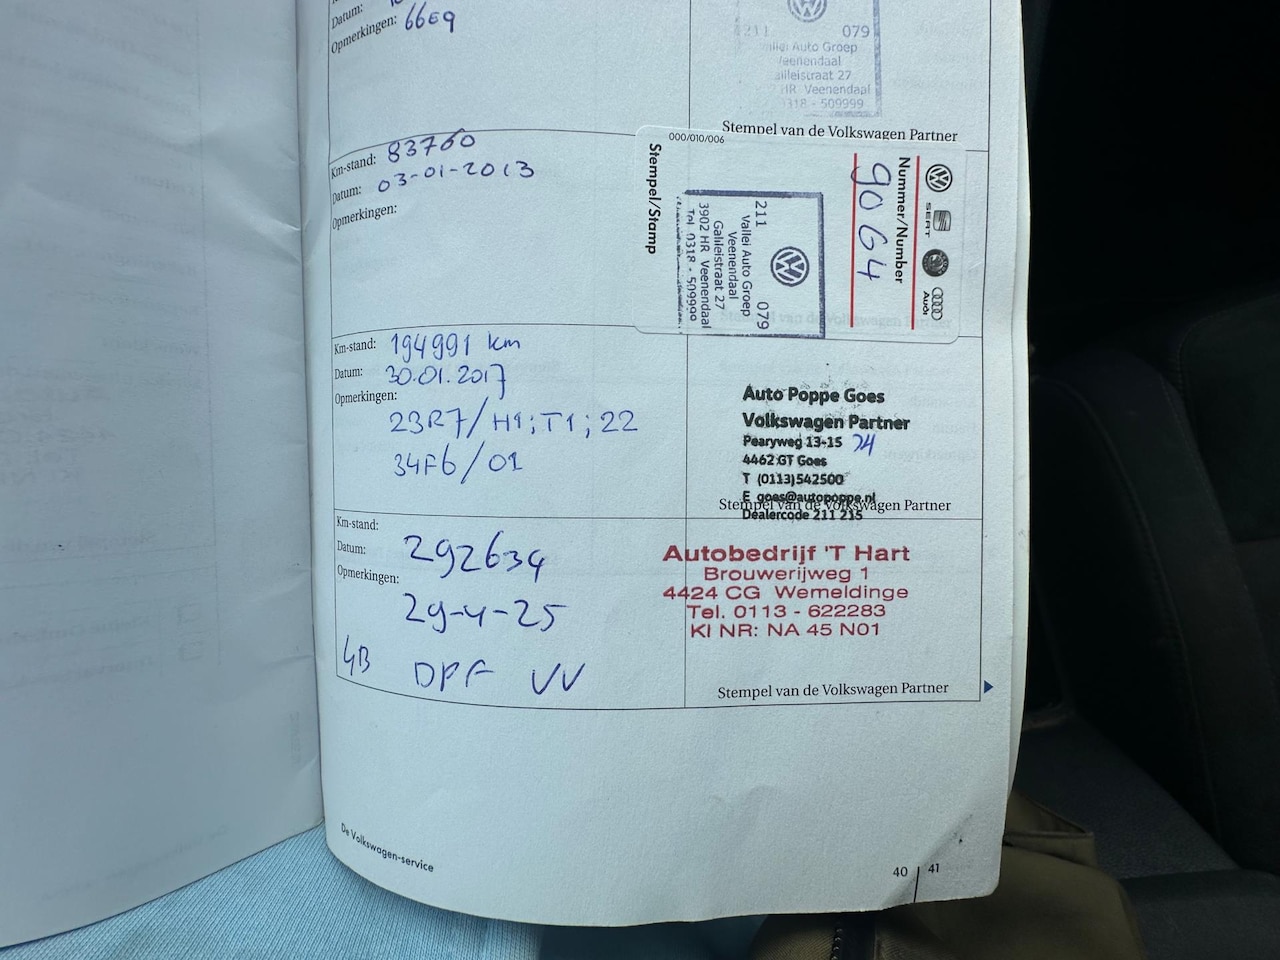 Datum:
Opmerkingen: 66E9
211 079
Vallei Auto Groep
Veenendaal
Galileistraat 27
HR Veenendaal
0318 - 509999
Stempel van de Volkswagen Partner
Km-stand: 83760
Datum: 03-01-2013
Opmerkingen:
000/010/006
SEAT
Audi
Nummer/Number
90G4
211 079
Vallei Auto Groep
Veenendaal
Galileistraat 27
3902 HR Veenendaal
Tel. 0318 - 509999
Stempel/Stamp
Km-stand: 194991 km
Datum: 30.01.2017
Opmerkingen:
23R7/H1;T1;22
34F6/01
Auto Poppe Goes
Volkswagen Partner
Pearyweg 13-15
4462 GT Goes
T (0113)542500
E goes@autopoppe.nl
Dealercode 211 215
Stempel van de Volkswagen Partner
Km-stand:
Datum: 292634
Opmerkingen:
29-4-25
GB DPF VV
Autobedrijf 'T Hart
Brouwerijweg 1
4424 CG Wemeldinge
Tel. 0113 - 622283
KI NR: NA 45 N01
Stempel van de Volkswagen Partner
De Volkswagen-service
40 41